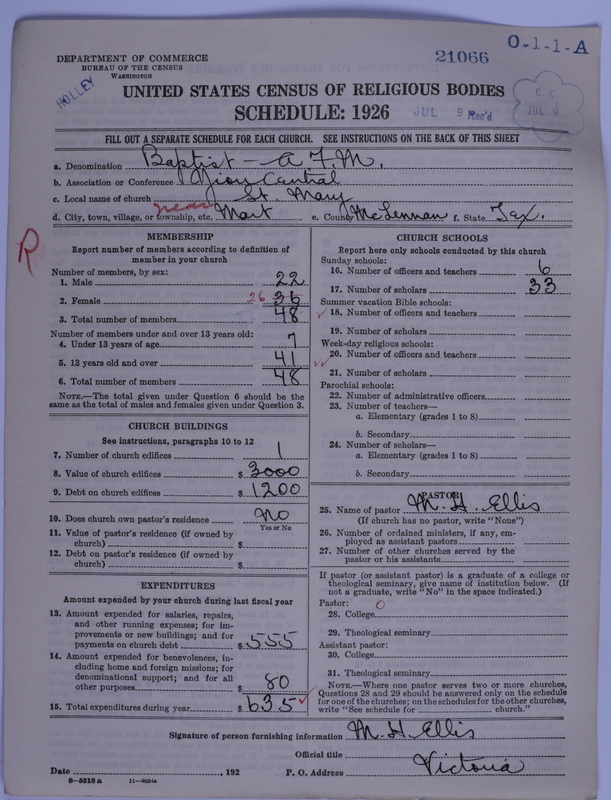 DEPARTMENT OF COMMERCE
BUREAU OF THE CENSUS
WASHINGTON
HOLLEY
21066
O-1-1-A
UNITED STATES CENSUS OF RELIGIOUS BODIES
SCHEDULE: 1926
JUL 9 Rec'd
C. C.
JUL 9
FILL OUT A SEPARATE SCHEDULE FOR EACH CHURCH. SEE INSTRUCTIONS ON THE BACK OF THIS SHEET
a. Denomination Baptist - A F.M.
b. Association or Conference Zion Central
c. Local name of church St. Mary
d. City, town, village, or township, etc. near Mart e. County McLennan f. State Tex.
R
MEMBERSHIP
Report number of members according to definition of
member in your church
Number of members, by sex:
1. Male 22
2. Female 26 36
3. Total number of members 48
Number of members under and over 13 years old:
4. Under 13 years of age 7
5. 13 years old and over 41
6. Total number of members 48
NOTE.—The total given under Question 6 should be
same as the total of males and females given under Question 3.
CHURCH BUILDINGS
See instructions, paragraphs 10 to 12
7. Number of church edifices 1
8. Value of church edifices $ 3000
9. Debt on church edifices $ 1200
10. Does church own pastor's residence No
Yes or No
11. Value of pastor's residence (if owned by
church) $
12. Debt on pastor's residence (if owned by
church) $
EXPENDITURES
Amount expended by your church during last fiscal year
13. Amount expended for salaries, repairs,
and other running expenses; for im-
provements or new buildings; and for
payments on church debt $ 555
14. Amount expended for benevolences, in-
cluding home and foreign missions; for
denominational support; and for all
other purposes $ 80
15. Total expenditures during year $ 635
CHURCH SCHOOLS
Report here only schools conducted by this church
Sunday schools:
16. Number of officers and teachers 6
17. Number of scholars 33
Summer vacation Bible schools:
18. Number of officers and teachers
19. Number of scholars
Week-day religious schools:
20. Number of officers and teachers
21. Number of scholars
Parochial schools:
22. Number of administrative officers
23. Number of teachers—
a. Elementary (grades 1 to 8)
b. Secondary
24. Number of scholars—
a. Elementary (grades 1 to 8)
b. Secondary
PASTOR
25. Name of pastor M. H. Ellis
(If church has no pastor, write "None")
26. Number of ordained ministers, if any, em-
ployed as assistant pastors
27. Number of other churches served by the
pastor or his assistants
If pastor (or assistant pastor) is a graduate of a college or
theological seminary, give name of institution below. (If
not a graduate, write "No" in the space indicated.)
Pastor: 0
28. College
29. Theological seminary
Assistant pastor:
30. College
31. Theological seminary
NOTE.—Where one pastor serves two or more churches,
Questions 28 and 29 should be answered only on the schedule
for one of the churches; on the schedules for the other churches,
write "See schedule for church."
Signature of person furnishing information M. H. Ellis
Official title
Date , 192 P. O. Address Victoria
8—5518a 11—9054a